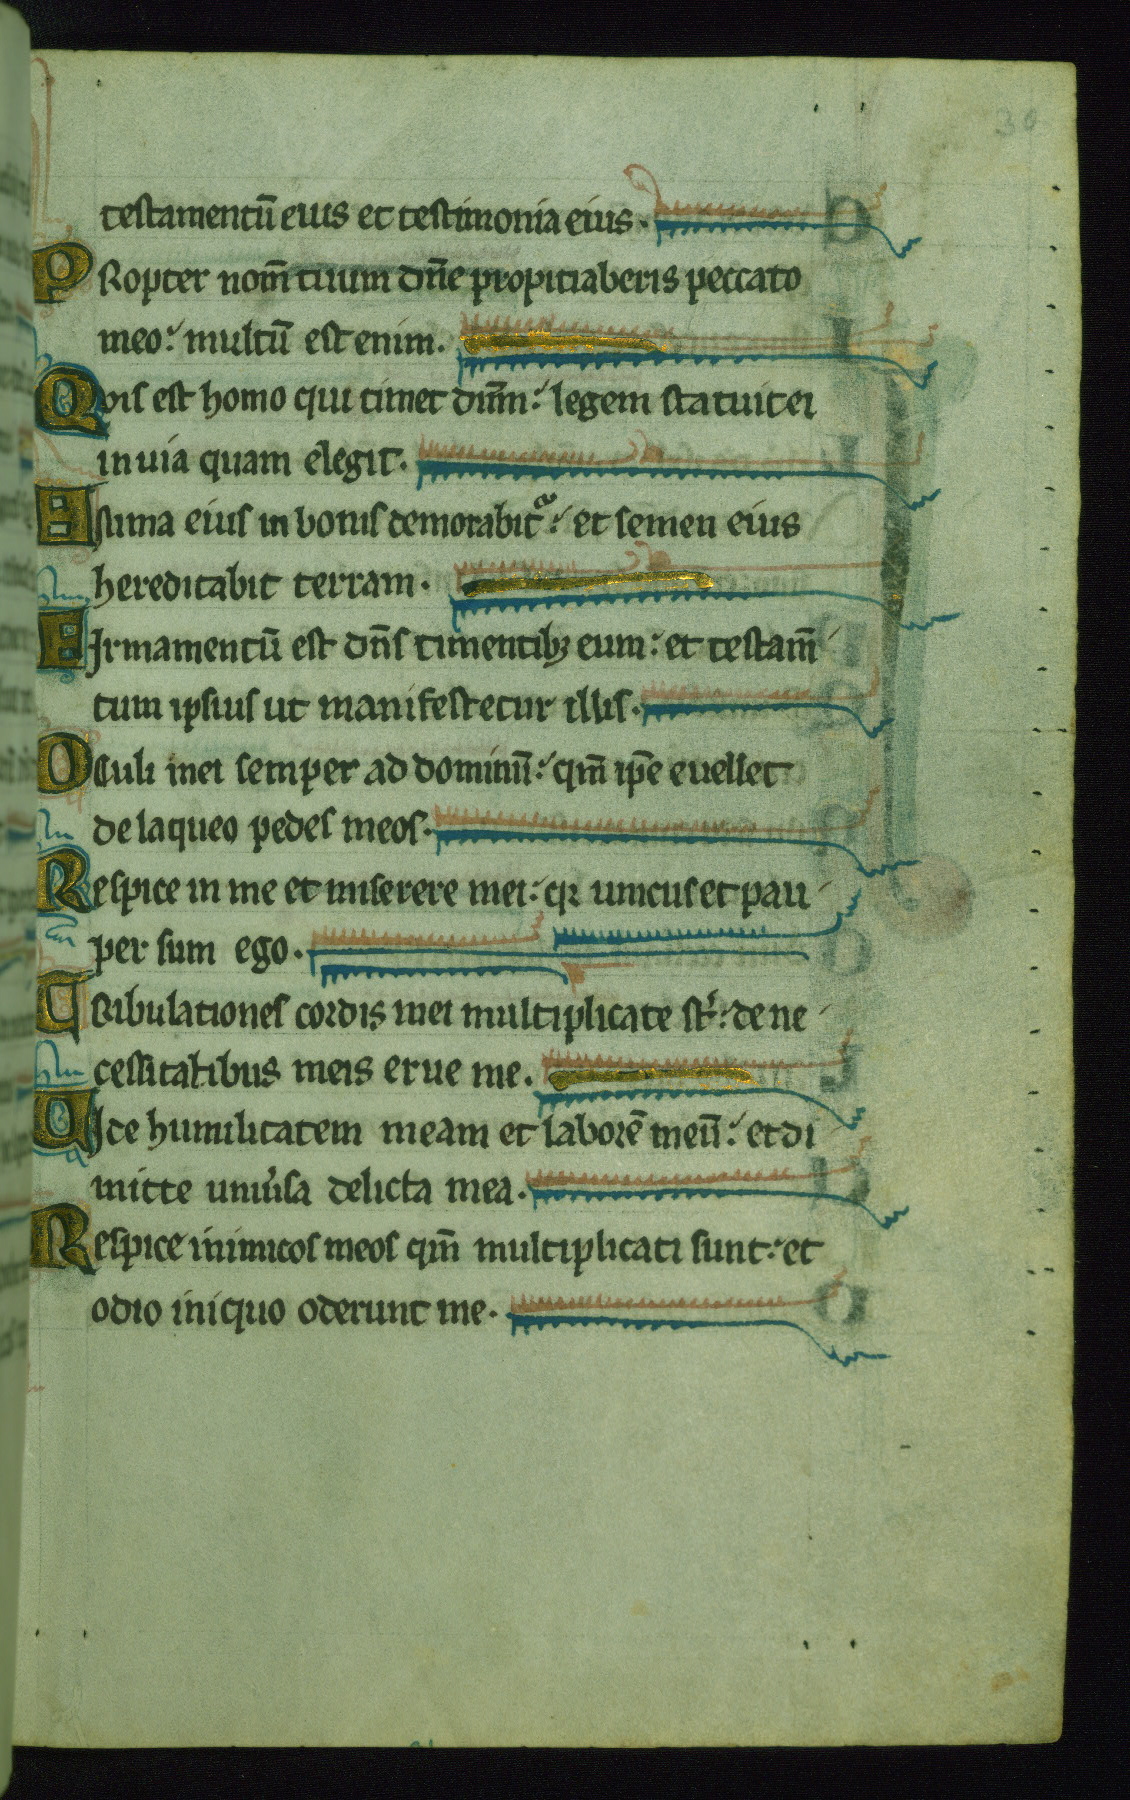 30
testamentū eius et testimonia eius.
PRopter nom̄ tuum dn̄e propitiaberis peccato
meo: multū est enim.
Quis est homo qui timet dn̄m: legem statuit ei
in uia quam elegit.
ANima eius in bonis demorabitᵃ: et semen eius
hereditabit terram.
FIrmamentū est dn̄s timentibꝫ eum: et testam̄
tum ipsius ut manifestetur illis.
OCuli mei semper ad dominū: qm̄ ip̄e euellet
de laqueo pedes meos.
Respice in me et miserere mei: qꝛ unicus et pau
per sum ego.
TRibulationes cordis mei multiplicate st̄: de ne
cessitatibus meis erue me.
UIde humilitatem meam et laborē meū: et di
mitte uniu̓sa delicta mea.
Respice inimicos meos qm̄ multiplicati sunt: et
odio iniquo oderunt me.